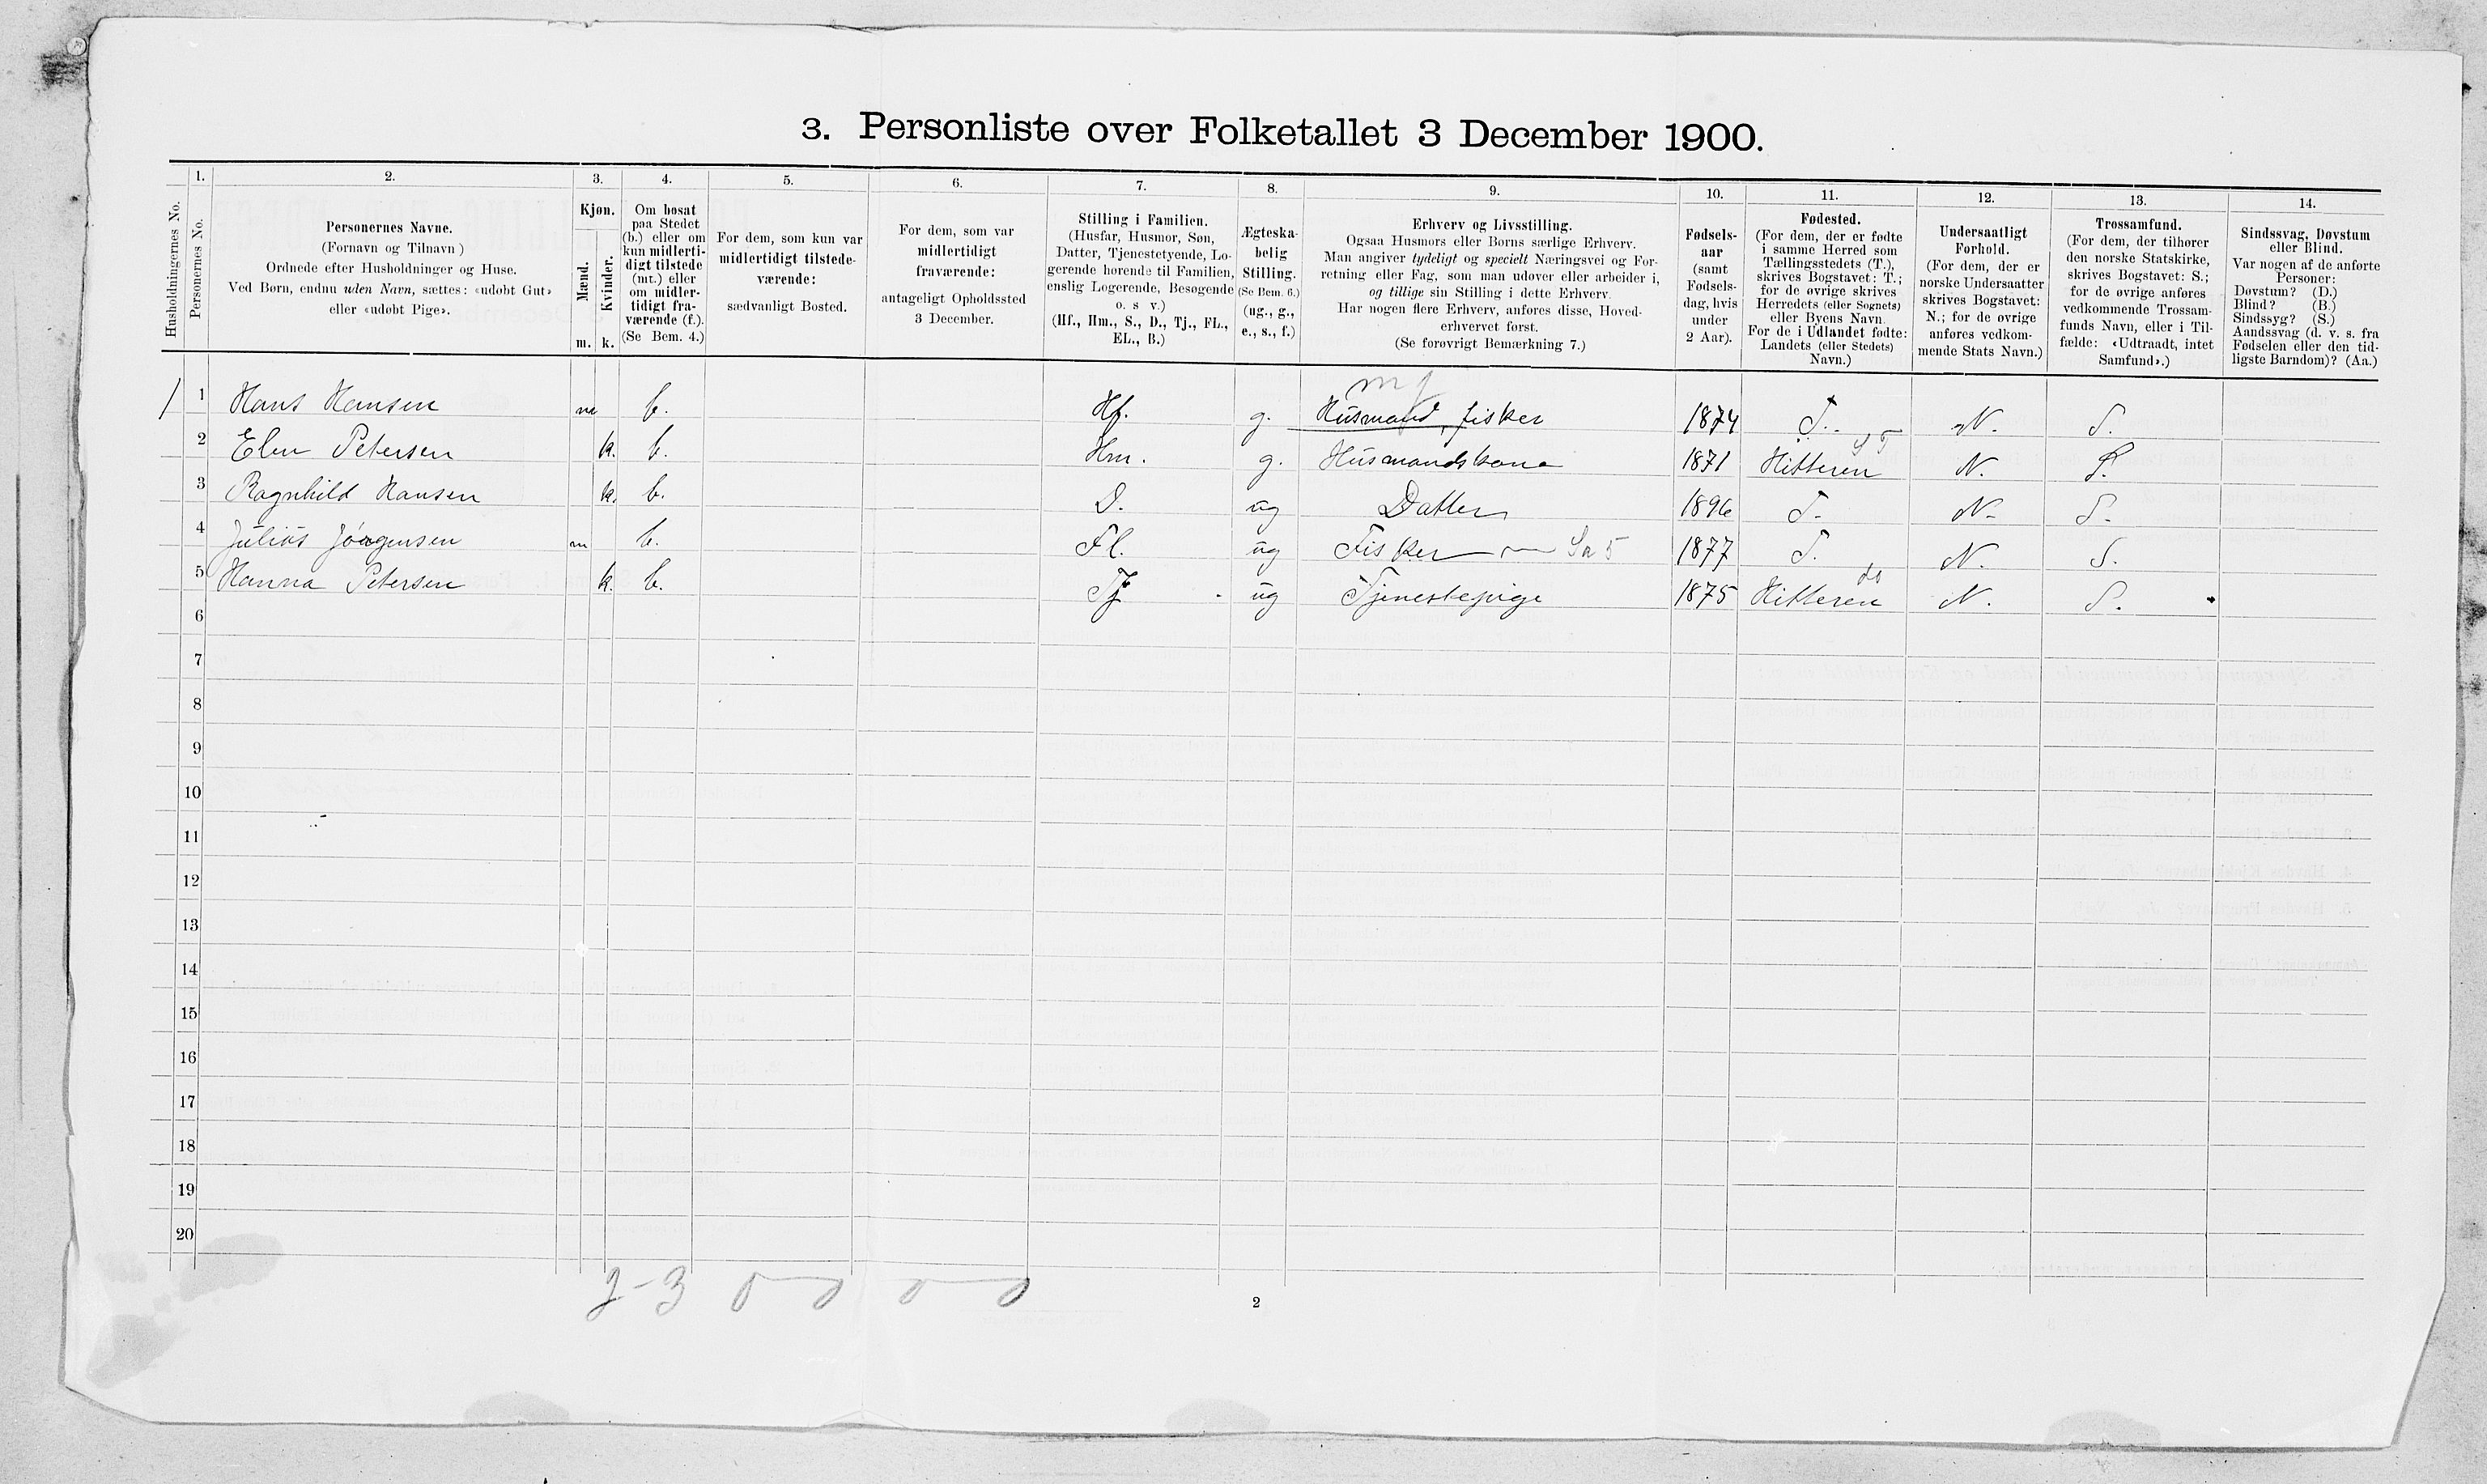 3. Personliste over Folketallet 3 December 1900.
Husholdningernes No.
1.
Personernes No.
2.
Personernes Navne.
(Fornavn og Tilnavn)
Ordnede efter Husholdninger og Huse.
Ved Børn, endnu uden Navn, sættes: «udøbt Gut»
eller «udøbt Pige».
3.
Kjøn.
Mænd.
Kvinder.
m. k.
4.
Om bosat
paa Stedet
(b.) eller om
kun midlerti-
digt tilstede
(mt.) eller
om midler-
tidigt fra-
værende (f.).
(Se Bem. 4.)
5.
For dem, som kun var
midlertidigt tilstede-
værende:
sædvanligt Bosted.
6.
For dem, som var
midlertidigt
fraværende:
antageligt Opholdssted
3 December.
7.
Stilling i Familien.
(Husfar, Husmor, Søn,
Datter, Tjenestetyende, Lo-
gerende hørende til Familien,
enslig Logerende, Besøgende
o. s v.)
(Hf., Hm., S., D., Tj., FL.,
EL., B.)
8.
Ægteska-
belig
Stilling.
(Se Bem. 6.)
(ug., g.,
e., s., f.)
9.
Erhverv og Livsstilling.
Ogsaa Husmors eller Børns særlige Erhverv.
Man angiver tydeligt og specielt Næringsvei og For-
retning eller Fag, som man udøver eller arbeider i,
og tillige sin Stilling i dette Erhverv.
Har nogen flere Erhverv, anføres disse, Hoved-
erhvervet først.
(Se forøvrigt Bemærkning 7.)
10.
Fødsels-
aar
(samt
Fødsels-
dag, hvis
under
2 Aar).
11.
Fødested.
(For dem, der er fødte
i samme Herred som
Tællingsstedets (T.),
skrives Bogstavet: T.;
for de øvrige skrives
Herredets (eller Sognets)
eller Byens Navn
For de i Udlandet fødte:
Landets (eller Stedets)
Navn.)
12.
Undersaatligt
Forhold.
(For dem, der er
norske Undersaatter
skrives Bogstavet:
N.; for de øvrige
anføres vedkom-
mende Stats Navn.)
13.
Trossamfund.
(For dem, der tilhører
den norske Statskirke,
skrives Bogstavet: S.;
for de øvrige anføres
vedkommende Trossam-
funds Navn, eller i Til-
fælde: «Udtraadt, intet
Samfund».)
14.
Sindssvag, Døvstum
eller Blind.
Var nogen af de anførte
Personer:
Døvstum? (D.)
Blind? (B.)
Sindssyg? (S.)
Aandssvag (d. v. s. fra
Fødselen eller den tid-
ligste Barndom)? (Aa.)
1 1 Hans Hansen m b. Hf. g. Husmand, fisker 1874 T. N. S.
2 Elen Petersen k. b. Hm. g. Husmandskone 1871 Hitteren N. S.
3 Ragnhild Hansen k. b. D. ug Datter 1896 T. N. S.
4 Julius Jørgensen m b. Fl. ug Fisker 1877 T. N. S.
5 Hanna Petersen k. b. Tj. ug Tjenestepige 1875 Hitteren do N. S.
6
7
8
9
10
11
12
13
14
15
16
17
18
19
20
2-3 0 0 0 0
2